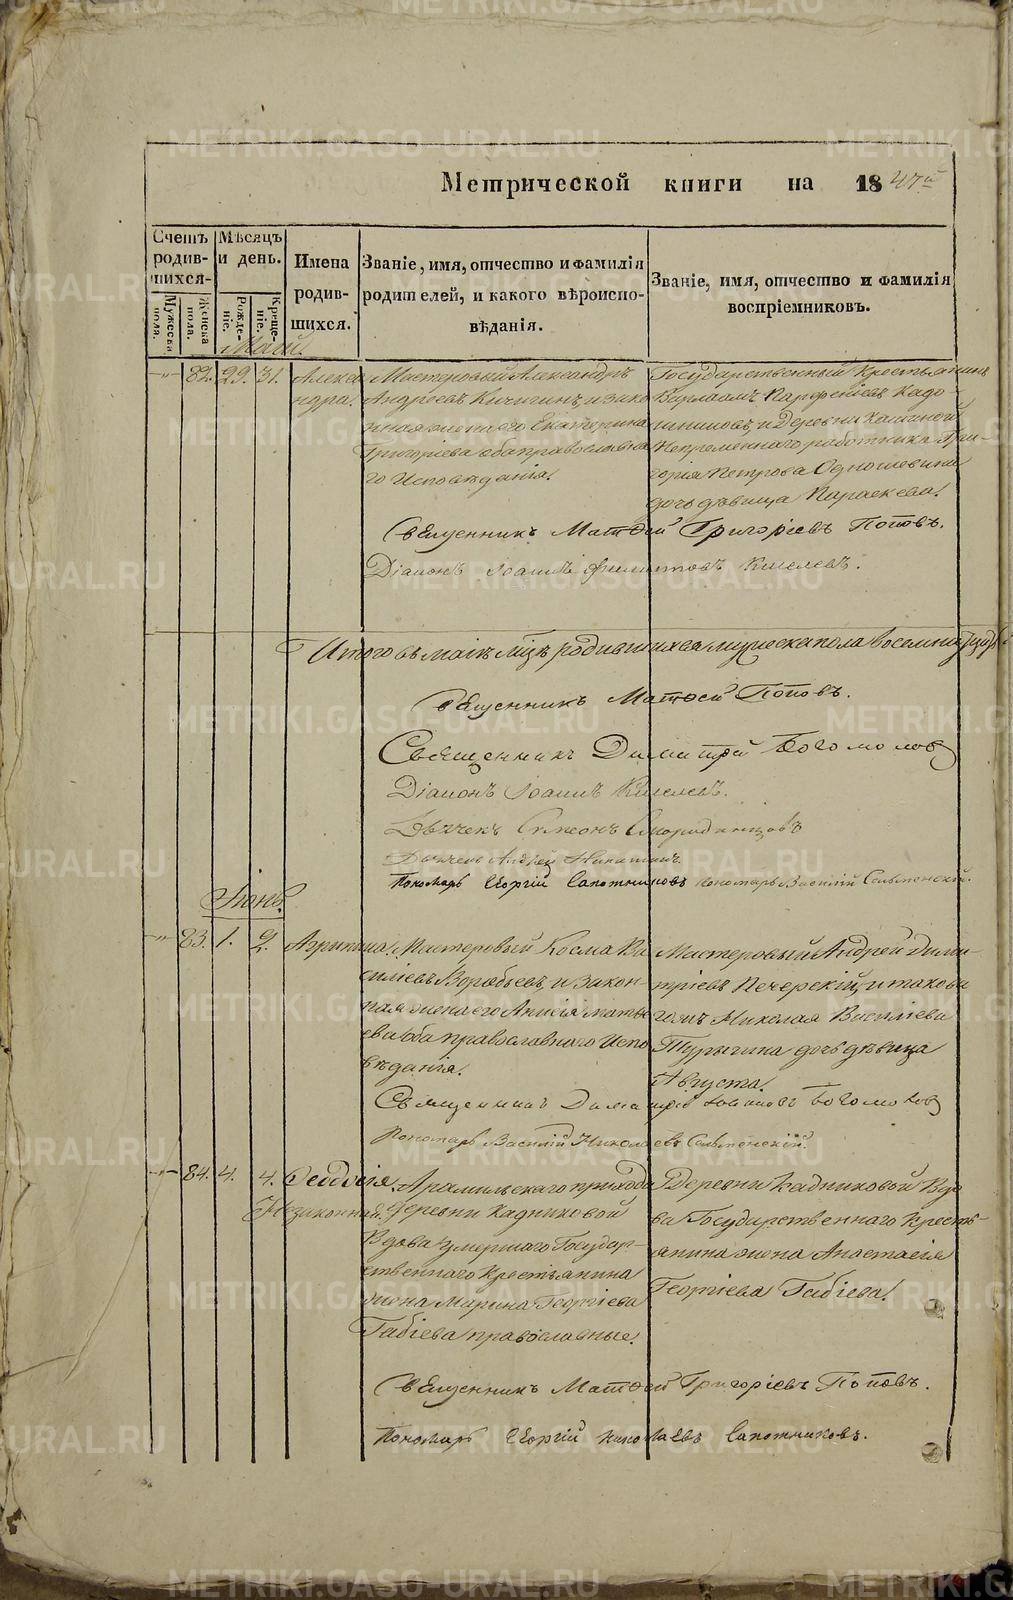 Метрической книги на 1847й
Счетъ родив-шихся.
Мѣсяцъ и день.
Имена родив-шихся.
Званіе, имя, отчество и фамилія родителей, и какого вѣроиспо-вѣданія.
Званіе, имя, отчество и фамилія воспріемниковъ.
Мужеска пола.
Женска пола.
Рожде-ніе.
Креще-ніе.
Маій.
-"- 82. 29. 31.
Алекса
ндра.
Мастеровый Александръ
Андреевъ Кичигинъ, и зако
нная жена его Екатерина
Григоріева оба православна
го Исповѣданія.
Государственный крестьянинъ
Варлаамъ Парфеніевъ
и Деревни
Непремѣннаго работника Гри-
горія Петрова
дочь дѣвица Параскева.
Священникъ Матѳей Григоріевъ Поповъ.
Діаконъ Іоаннъ Филиповъ Киселевъ.
Итого въ маіѣ мцѣ родившихся мужеска пола восемнадцать
Священникъ Матѳей Поповъ.
Священникъ Димитрій Богомоловъ
Діаконъ Іоаннъ Киселевъ.
Дьячекъ Симеонъ Смородинцовъ
Дьячекъ Андрей Никитинъ
Пономарь Георгій Сапожниковъ пономарь Василій Сельменскій.
Іюнь.
-"- 83. 1. 2.
Агрипина.
Мастеровый Косма Ва
силіевъ Воробьевъ, и закон-
ная жена его Анисія Матѳ
ева оба православнаго Испо
вѣданія.
Мастеровый Андрей Дими
тріевъ Печерскій, и таково
гожъ Николая Василіева
Турыгина дочь дѣвица
Августа.
Священникъ Димитрій Іоанновъ Богомоловъ
Пономарь Василій Николаевъ Сельменскій.
-"- 84. 4. 4.
Ѳеодосія
Незаконная.
Арамильскаго прихода
Деревни Кадниковой
Вдова умершаго Государ-
ственнаго Крестьянина
жена Марина Георгіева
Габіева православные.
Деревни Кадниковой Вдо
ва Государственнаго Кресть-
янина жена Анастасія
Георгіева Габіева.
Священникъ Матѳей Григоріевъ Поповъ.
Пономарь Георгій Николаевъ Сапожниковъ.
METRIKI.GASO-URAL.RU